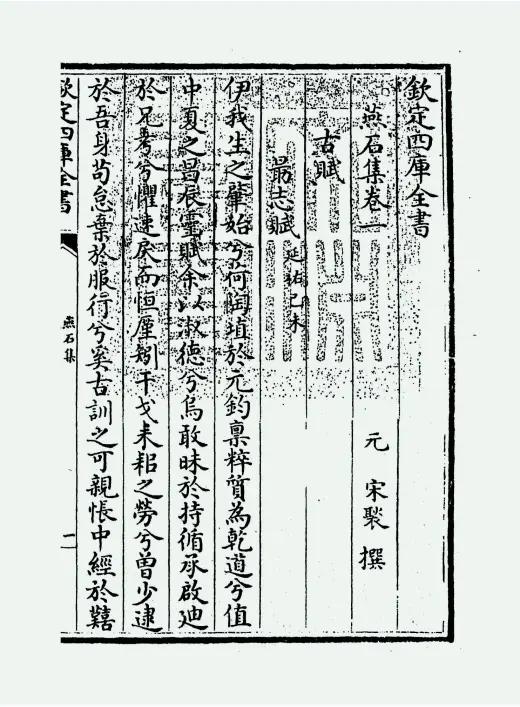 欽定四庫全書
燕石集卷一
元 宋褧 撰
古賦
勗志賦 延祐己未
伊我生之肇始兮荷陶埴於元鈞稟粹質為乾道兮值
中夏之昌辰靈賦余以淑德兮烏敢昧於持循承啟迪
於兄考兮懼速戾而恒厪矧干戈耒耜之勞兮曾少逮
於吾身苟怠棄於服行兮奚古訓之可親悵中經於囏
欽定四庫全書
燕石集